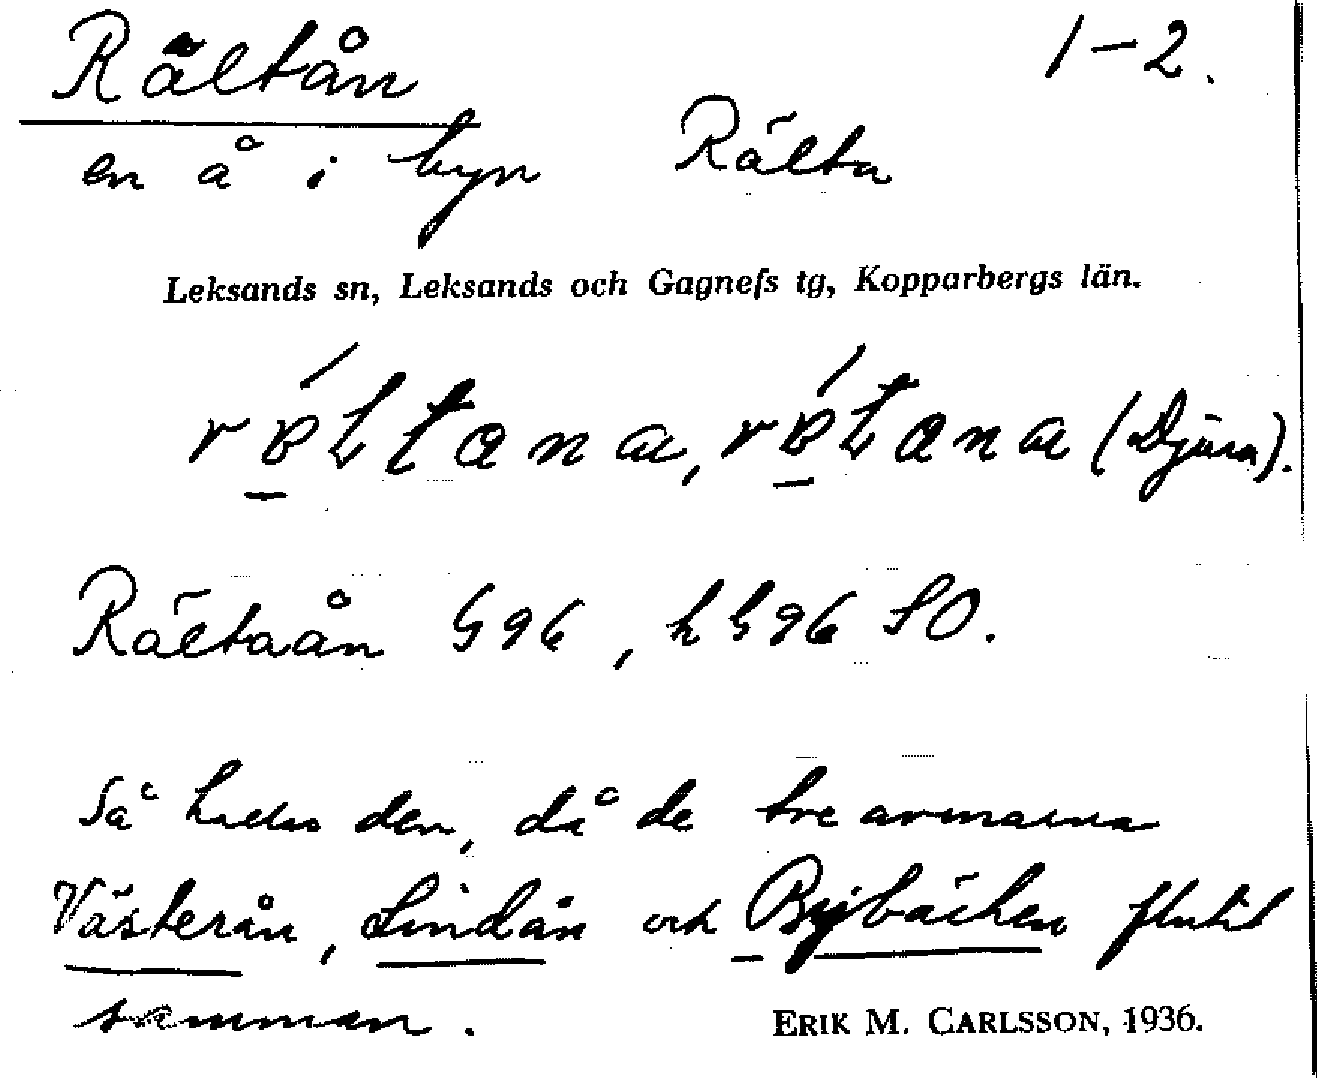 Rältån 1-2.
en å i byn Rälta
Leksands sn, Leksands och Gagnefs tg, Kopparbergs län.
(Djura).
Rältaån G96, hG96 SO.
Så kallas den, då de tre armarna
Västerån, Lindån och Bybäcken flutit
samman.
ERIK M. CARLSSON, 1936.